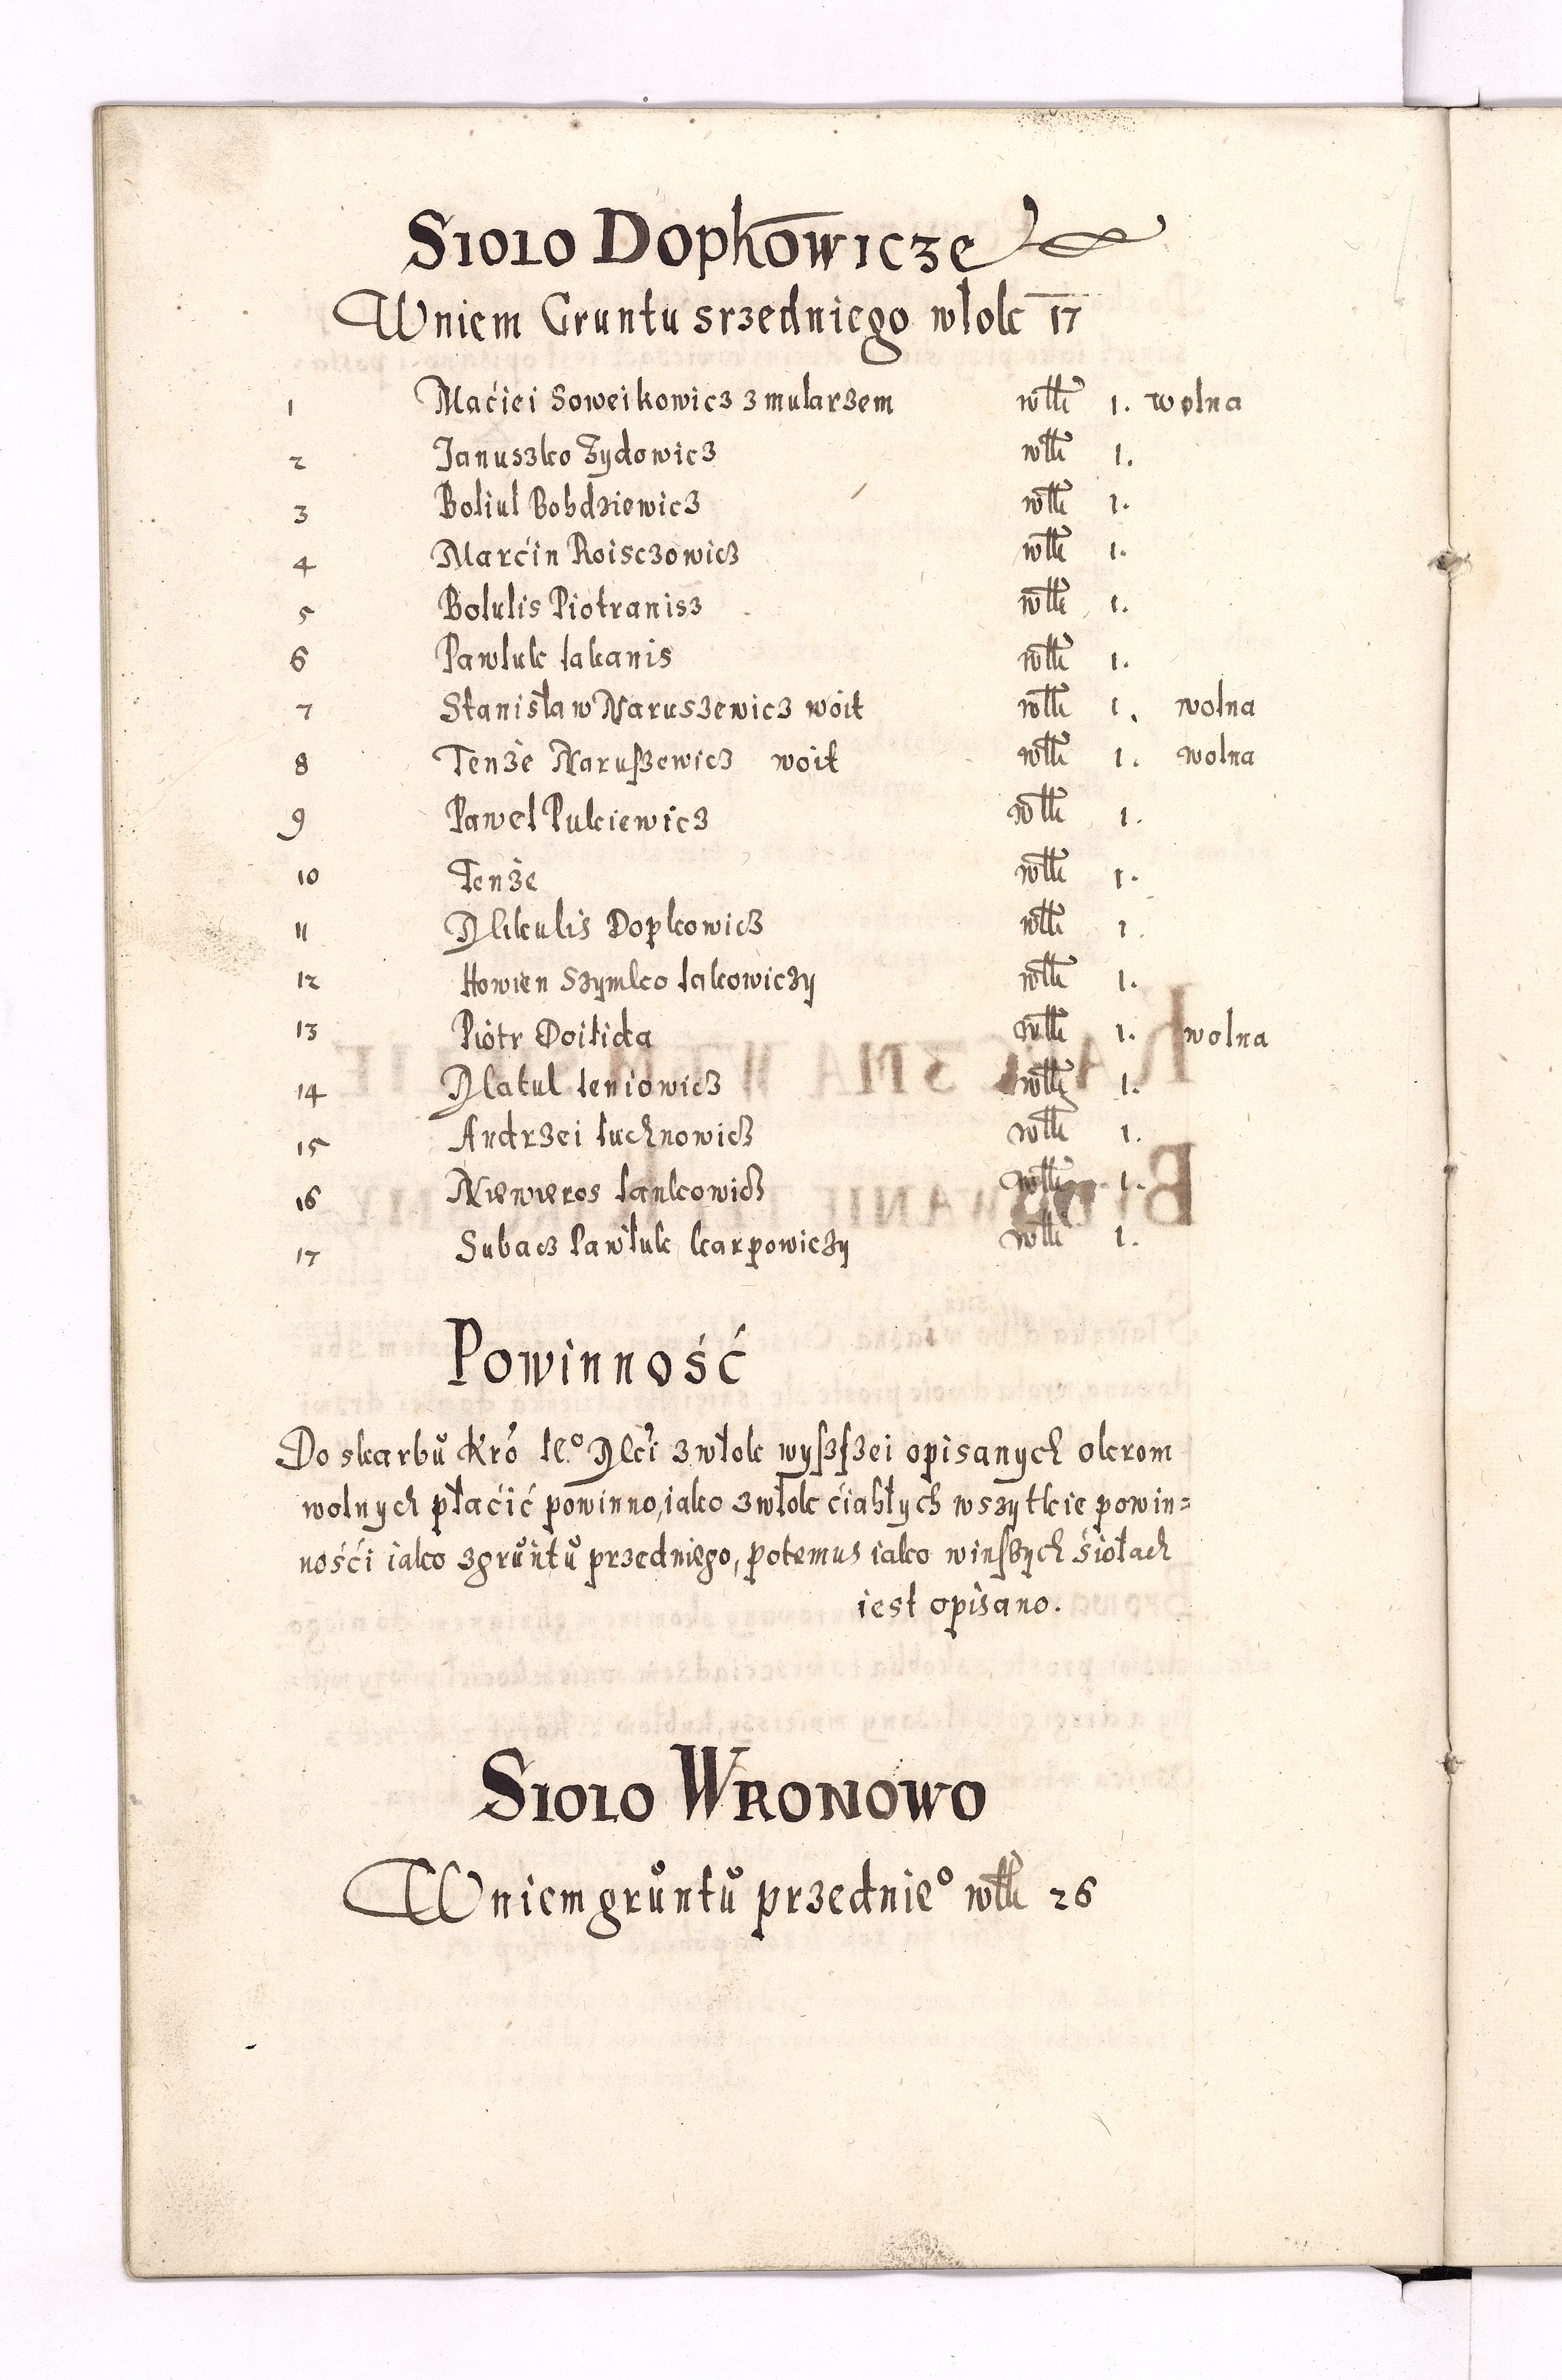 Sioło Dopkowicze
W niem Gruntu srzedniego włok 17
1 Maćiei Soweikowicz z mularzem włk 1. wolna
2 Januszko Żydowicz włk 1.
3 Boliul Bohdziewicz włk 1.
4 Marćin Roisczowicz włk 1.
5 Bolulis Piotranisz włk 1.
6 Pawluk Iakanis włk 1.
7 Stanisław Naruszewicz woit włk 1. wolna
8 Tenże Naruszewicz woit włk 1. wolna
9 Paweł Pukiewicz włk 1.
10 Tenże włk 1.
11 Mikulis Dopkowicz włk 1.
12 Howien Szymko Iakowiczy włk 1.
13 Piotr Doilida włk 1. wolna
14 Matul Ieniowicz włk 1.
15 Andrzei Iuchnowicz włk 1.
16 Niewieros Iankowicz włk 1.
17 Subacz Pawłuk karpowiczy włk 1.
Powinność
Do skarbů Kró Ieº Mći z włok wyszszei opisanych okrom
wolnych płaćić powinno, iako z włok ćiahłych wszytkie powin=
nośći iako z grůntů przedniego, potemus iako w inszych śiołach
iest opisano.
Sioło Wronowo
W niem grůntů przednieº włk 26